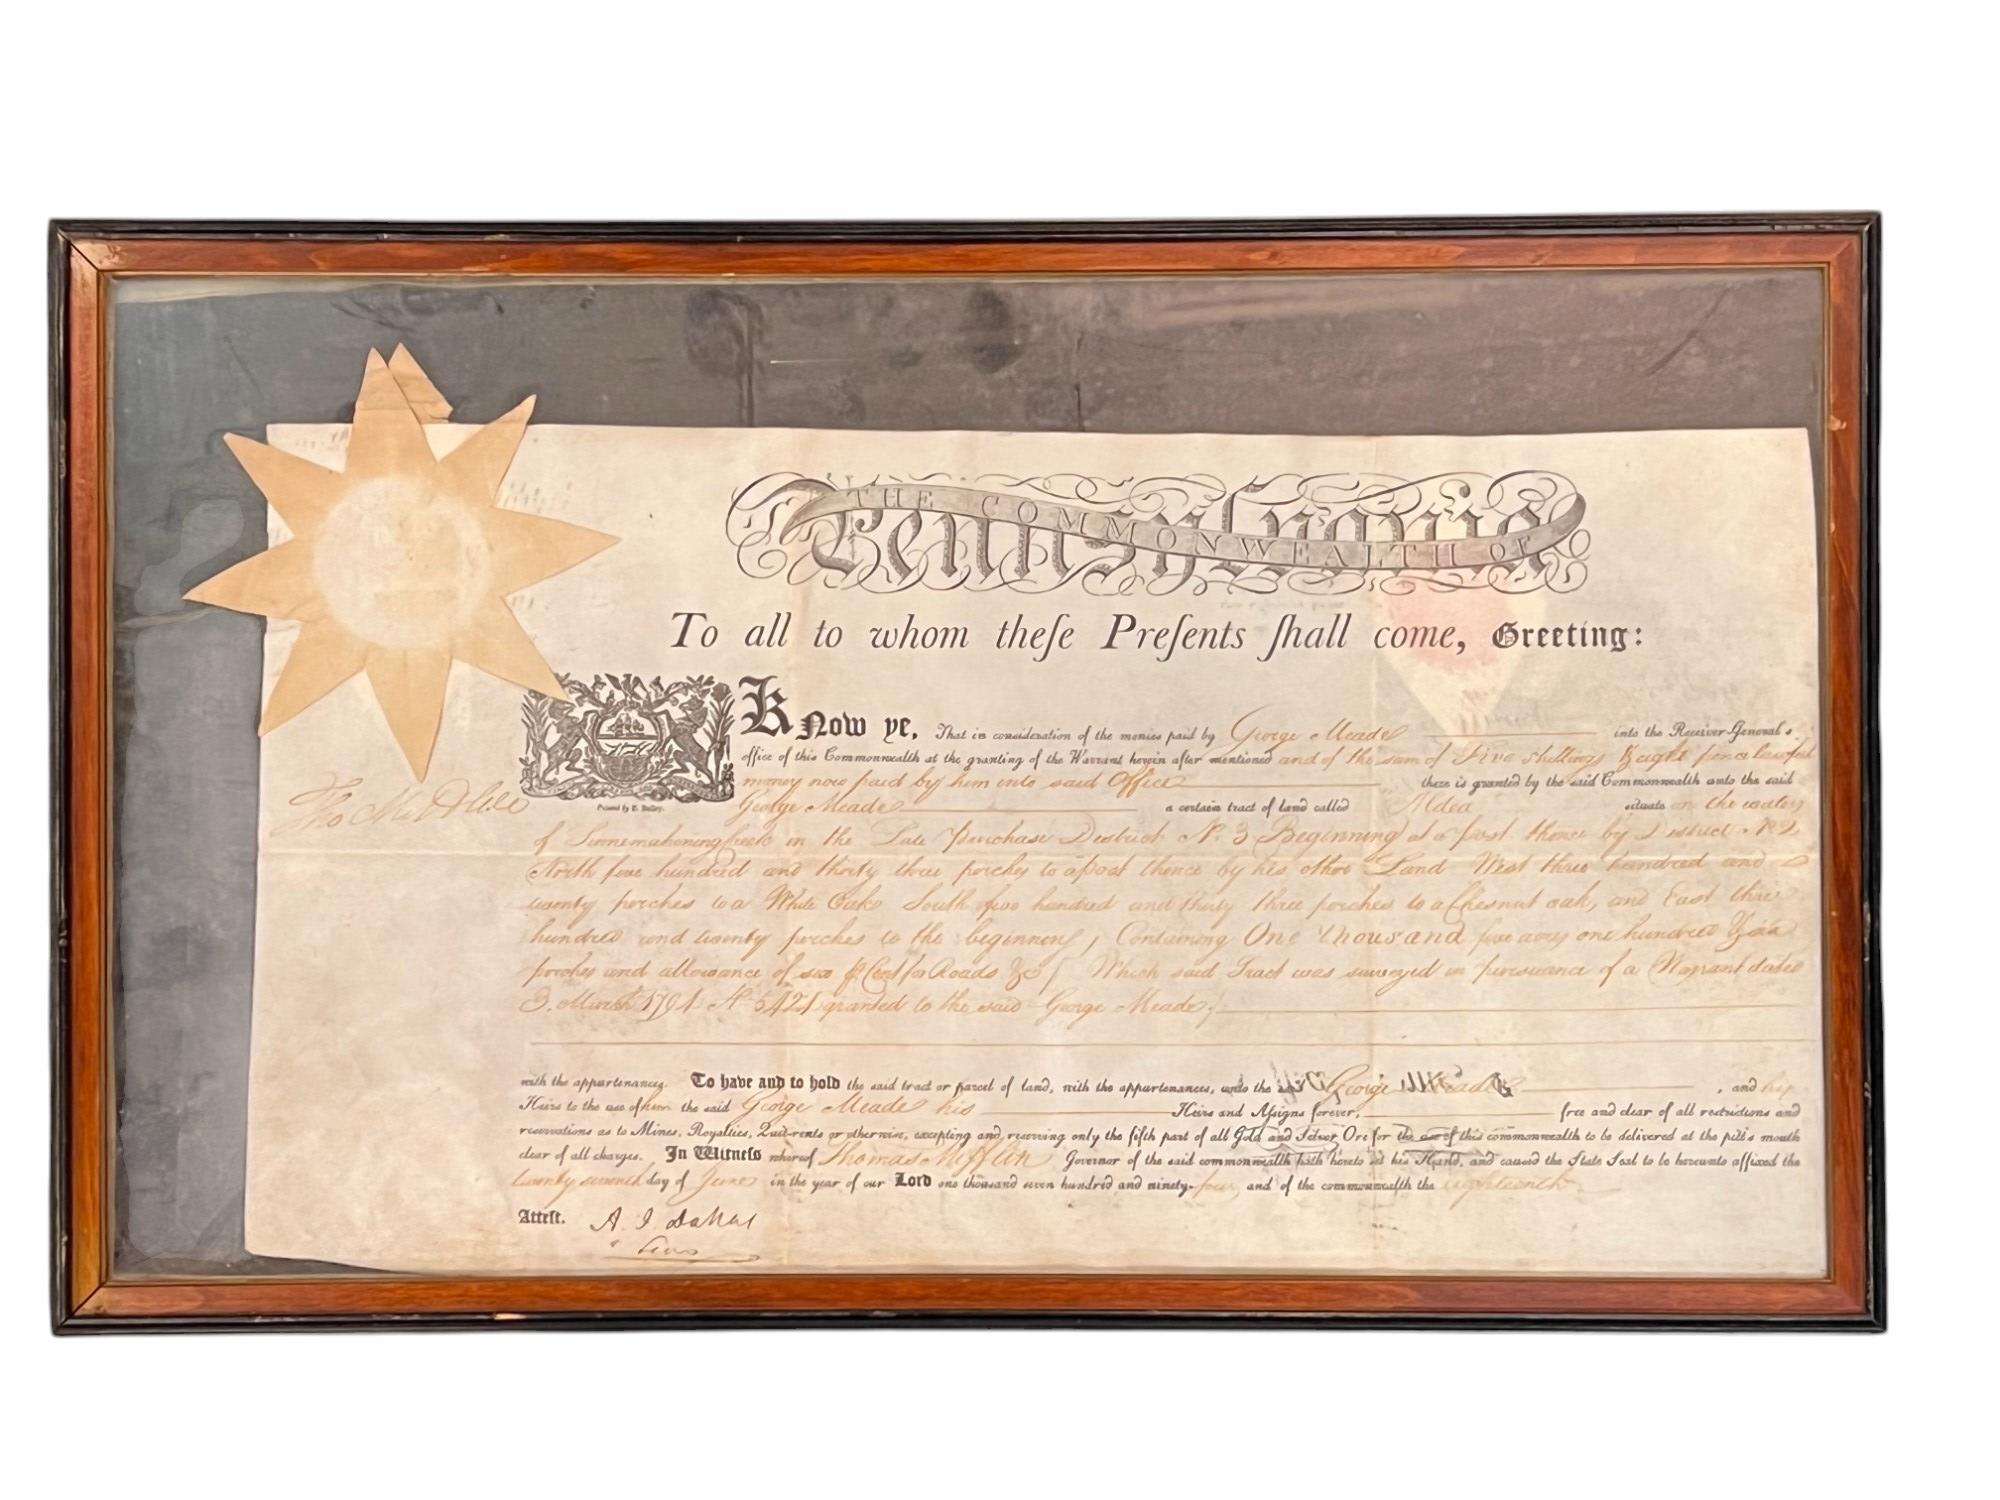 THE COMMONWEALTH OF
Pennsylvania
To all to whom theſe Preſents ſhall come, Greeting:
Know ye, That in consideration of the monies paid by George Meade into the Receiver-General's
office of this Commonwealth at the granting of the Warrant herein after mentioned and of the sum of Five shillings & eight pence lawful
money now paid by him into said Office there is granted by the said Commonwealth unto the said
Printed by F. Bailey.
George Meade a certain tract of land called Aldea situate on the waters
of Sinnemahoning Creek in the Late Purchase District No. 3 Beginning at a post thence by District No 2
North five hundred and thirty three perches to a post thence by his other Land West three hundred and
twenty perches to a White Oak South five hundred and thirty three perches to a Chesnut oak, and East three
hundred and twenty perches to the beginning, Containing One thousand five acres one hundred
perches and allowance of six P Cent for Roads &c Which said Tract was surveyed in pursuance of a Warrant dated
3. March 1794 No 5421 granted to the said George Meade;
with the appurtenances. To have and to hold the said tract or parcel of land, with the appurtenances, unto the said George Meade, and his
Heirs to the use of him the said George Meade his Heirs and Aſsigns forever, free and clear of all restrictions and
reservations as to Mines, Royalties, Quit-rents or otherwise, excepting and reserving only the fifth part of all Gold and Silver Ore for the use of this commonwealth to be delivered at the pitt's mouth
clear of all charges. In Witneſs whereof Thomas Mifflin Governor of the said commonwealth hath hereto set his Hand, and caused the State Seal to be hereunto affixed the
twenty seventh day of June in the year of our Lord one thousand seven hundred and ninety-four, and of the commonwealth the eighteenth
Attest. A. J. Dallas
Secy